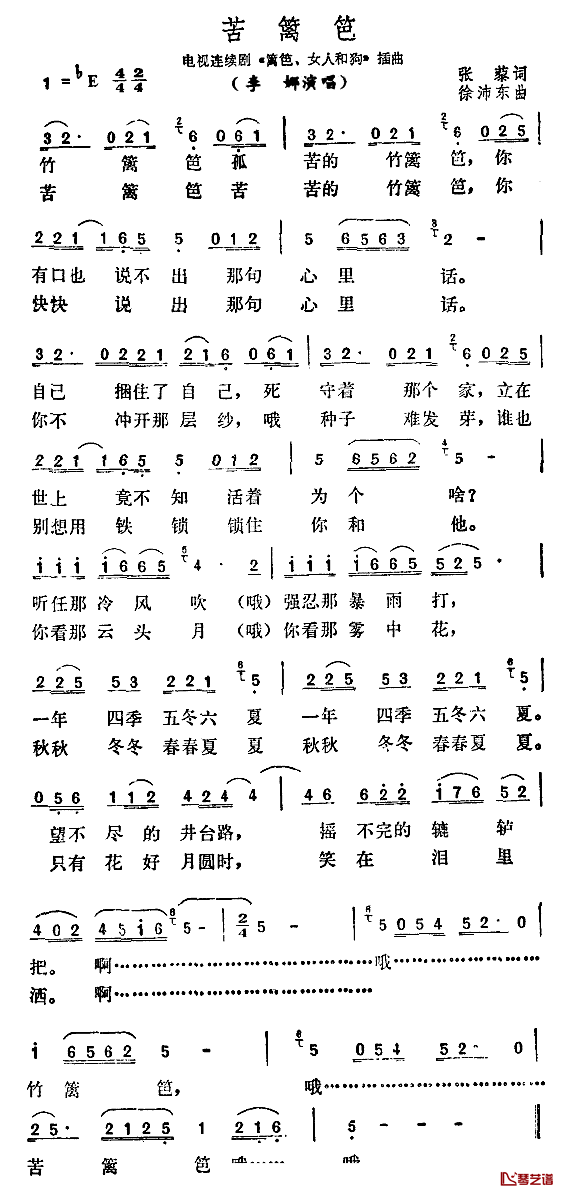 苦篱笆
电视连续剧《篱笆、女人和狗》插曲
1=♭E 4/4 2/4
(李 娜演唱)
张 藜词
徐沛东曲
32· 021 6 061 | 32· 021 6 025
竹 篱 笆 孤 苦的 竹篱 笆,你
苦 篱 笆 苦 苦的 竹篱 笆,你
221 165 5 012 | 5 6563 2 -
有口也 说不 出 那句 心 里 话。
快快 说 出 那句 心 里 话。
32· 0221 216 061 | 32· 021 6 025
自己 捆住了 自 己,死 守着 那个 家,立在
你不 冲开那 层 纱,哦 种子 难发 芽,谁也
221 165 5 012 | 5 6562 5 -
世上 竟不 知 活着 为 个 啥?
别想用 铁 锁 锁住 你 和 他。
iii i665 4· 2 | iii i665 525·
听任那 冷 风 吹 (哦) 强忍那 暴 雨 打,
你看那 云 头 月 (哦) 你看那 雾 中 花,
225 53 221 5 | 225 53 221 5
一年 四季 五冬六 夏 一年 四季 五冬六 夏。
秋秋 冬冬 春春夏 夏 秋秋 冬冬 春春夏 夏。
056 112 424 4 | 46 622 i76 52
望不 尽的 井台 路, 摇 不完的 辘 轳
只有 花 好 月圆 时, 笑 在 泪 里
402 45i6 5- | 2/4 5 - | 5 054 52· 0
把。 啊………………………哦…………
洒。 啊………………………
i 6562 5 - | 5 054 52· 0
竹 篱 笆, 哦…………
25· 2125 1 216 | 5 -
苦 篱 笆 哦…… 哦
琴艺谱